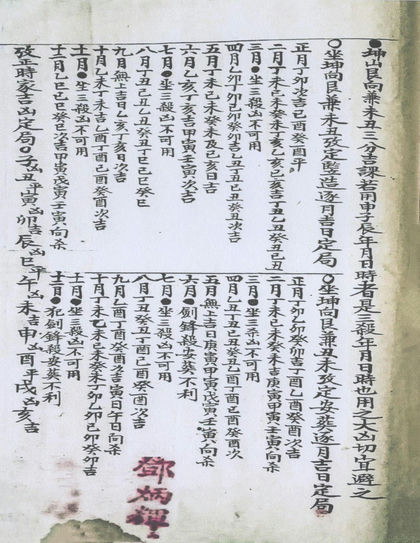 ●坤山艮向兼未丑三分吉課若用申子辰年月日時者是三殺年月日時也用之大凶切宜避之
○坐坤向艮兼未丑攷定豎造逐月吉日定局
正月丁卯次吉己酉癸酉平
二月丁未己未癸未丁亥乙亥己亥吉丁丑乙丑癸丑己丑
三月●坐三殺凶不可用
四月乙卯丁卯己卯癸卯吉乙丑丁丑己丑癸丑次吉
五月丁未己未癸未及己亥日吉
六月乙亥丁亥吉甲寅壬寅次吉
七月●坐三殺凶不可用
八月丁丑己丑乙丑癸丑丁巳乙巳癸巳
九月無上吉日乙亥丁亥日次吉
十月乙未丁未吉乙酉丁酉己酉癸酉次吉
十一月●坐三殺凶不可用
十二月乙巳己巳癸巳次吉甲寅戊寅壬寅向杀
○坐坤向艮兼丑未攷定安葬逐月吉日定局
正月丁卯乙卯癸卯吉丁酉乙酉癸酉次吉
二月丁未己未癸未吉庚寅甲寅壬寅向杀
三月●坐三杀凶不可用
四月乙丑丁丑己丑癸丑乙酉丁酉己酉癸酉次
五月無上吉日庚寅甲寅戊寅壬寅向杀
六月●劍鋒殺安葬不利
七月●坐三殺凶不可用
八月丁丑癸丑丁酉己酉癸酉次吉
九月乙酉丁酉癸酉次吉寅日午日向杀
十月丁未乙未己未癸未丁卯乙卯己卯癸卯吉
十一月●坐三殺凶不可用
十二月●犯劍鋒殺安葬不利
攷正時家吉凶定局子凶丑平寅凶卯吉辰凶巳平午凶未吉申凶酉平戌凶亥吉
鄧炳禪